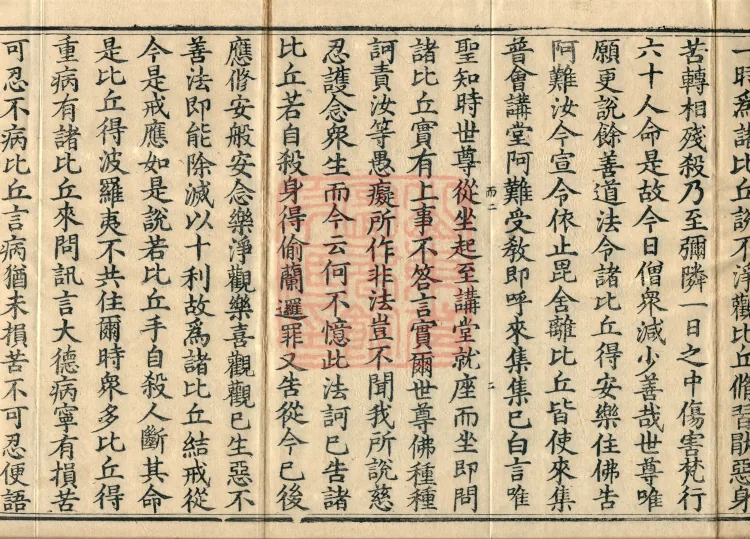 一時爲諸比丘說不淨觀比丘脩習猒惡身
苦轉相殘殺乃至彌隣一日之中傷害梵行
六十人命是故今日僧衆減少善哉世尊唯
願更說餘善道法令諸比丘得安樂住佛告
阿難汝今宣令依止毘舍離比丘皆使來集
普會講堂阿難受教即呼來集集已白言唯
而二
二
聖知時世尊從坐起至講堂就座而坐即問
諸比丘實有上事不答言實爾世尊佛種種
訶責汝等愚癡所作非法豈不聞我所說慈
忍護念衆生而今云何不憶此法訶已告諸
比丘若自殺身得偷蘭邏罪又告從今已後
應脩安般安念樂淨觀樂喜觀觀已生惡不
善法即能除滅以十利故爲諸比丘結戒從
今是戒應如是說若比丘手自殺人斷其命
是比丘得波羅夷不共住爾時衆多比丘得
重病有諸比丘來問訊言大德病寧有損苦
可忍不病比丘言病猶未損苦不可忍便語